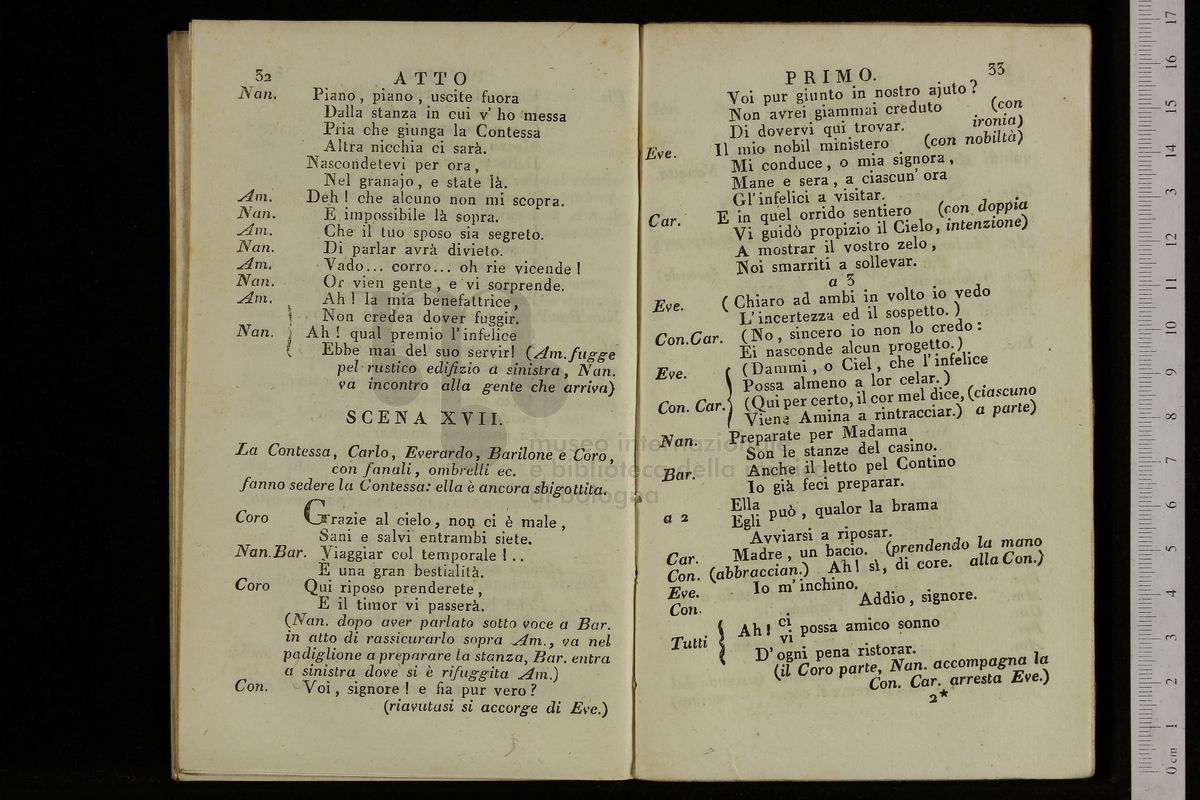 32
ATTO
Nan. Piano, piano, uscite fuora
Dalla stanza in cui v' ho messa
Pria che giunga la Contessa
Altra nicchia ci sarà.
Nascondetevi per ora,
Nel granajo, e state là.
Am. Deh! che alcuno non mi scopra.
Nan. È impossibile là sopra.
Am. Che il tuo sposo sia segreto.
Nan. Di parlar avrà divieto.
Am. Vado... corro... oh rie vicende!
Nan. Or vien gente, e vi sorprende.
Am. Ah! la mia benefattrice,
Non credea dover fuggir.
Nan. Ah! qual premio l'infelice
Ebbe mai del suo servir! (Am. fugge
pel rustico edifizio a sinistra, Nan.
va incontro alla gente che arriva)
SCENA XVII.
La Contessa, Carlo, Everardo, Barilone e Coro,
con fanali, ombrelli ec.
fanno sedere la Contessa: ella è ancora sbigottita.
Coro Grazie al cielo, non ci è male,
Sani e salvi entrambi siete.
Nan.Bar. Viaggiar col temporale!..
È una gran bestialità.
Coro Qui riposo prenderete,
E il timor vi passerà.
(Nan. dopo aver parlato sotto voce a Bar.
in atto di rassicurarlo sopra Am., va nel
padiglione a preparare la stanza, Bar. entra
a sinistra dove si è rifuggita Am.)
Con. Voi, signore! e fia pur vero?
(riavutasi si accorge di Eve.)
PRIMO.
33
Voi pur giunto in nostro ajuto?
Non avrei giammai creduto (con
Di dovervi qui trovar. ironia)
Eve. Il mio nobil ministero (con nobiltà)
Mi conduce, o mia signora,
Mane e sera, a ciascun' ora
Gl'infelici a visitar.
Car. E in quel orrido sentiero (con doppia
Vi guidò propizio il Cielo, intenzione)
A mostrar il vostro zelo,
Noi smarriti a sollevar.
a 3
Eve. (Chiaro ad ambi in volto io vedo
L'incertezza ed il sospetto.)
Con.Car. (No, sincero io non lo credo:
Ei nasconde alcun progetto.)
Eve. (Dammi, o Ciel, che l'infelice
Possa almeno a lor celar.)
Con. Car. (Qui per certo, il cor mel dice, (ciascuno
Viene Amina a rintracciar.) a parte)
Nan. Preparate per Madama
Son le stanze del casino.
Bar. Anche il letto pel Contino
Io già feci preparar.
a 2 Ella
Egli può, qualor la brama
Avviarsi a riposar.
Car. Madre, un bacio. (prendendo la mano
Con. (abbraccian.) Ah! sì, di core. alla Con.)
Eve. Io m'inchino.
Con. Addio, signore.
Tutti Ah! ci
vi possa amico sonno
D'ogni pena ristorar.
(il Coro parte, Nan. accompagna la
Con. Car. arresta Eve.)
2*
museo internazionale
e biblioteca della musica
di bologna
0 cm 1 2 3 4 5 6 7 8 9 10 11 12 13 14 15 16 17